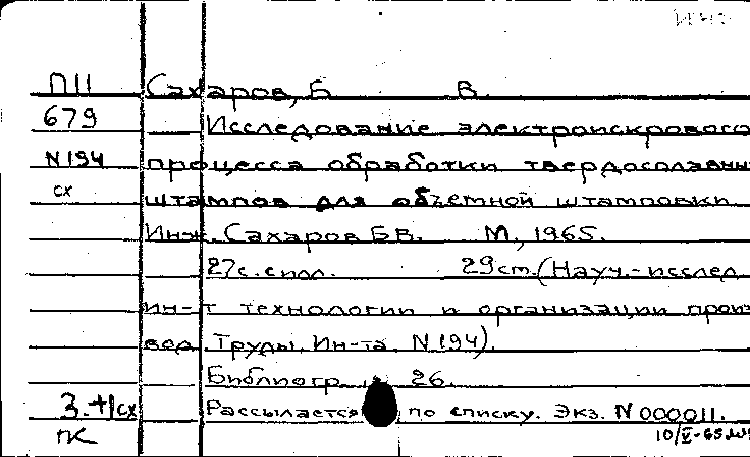 П11 Сахаров, Б В.
679 Исследование электроискрового
N194 процесса обработки твердосплавны
сх штампов для объемной штамповки
Инж. Сахаров Б.В. М, 1965.
27с. силл. 29см. (Науч.-исслед.
ин-т технологии и организации произ
вод. Труды. Ин-та N194).
Библиогр. 26.
3.+1сх Рассылается по списку. Экз. N000011.
ПК 10/V-65